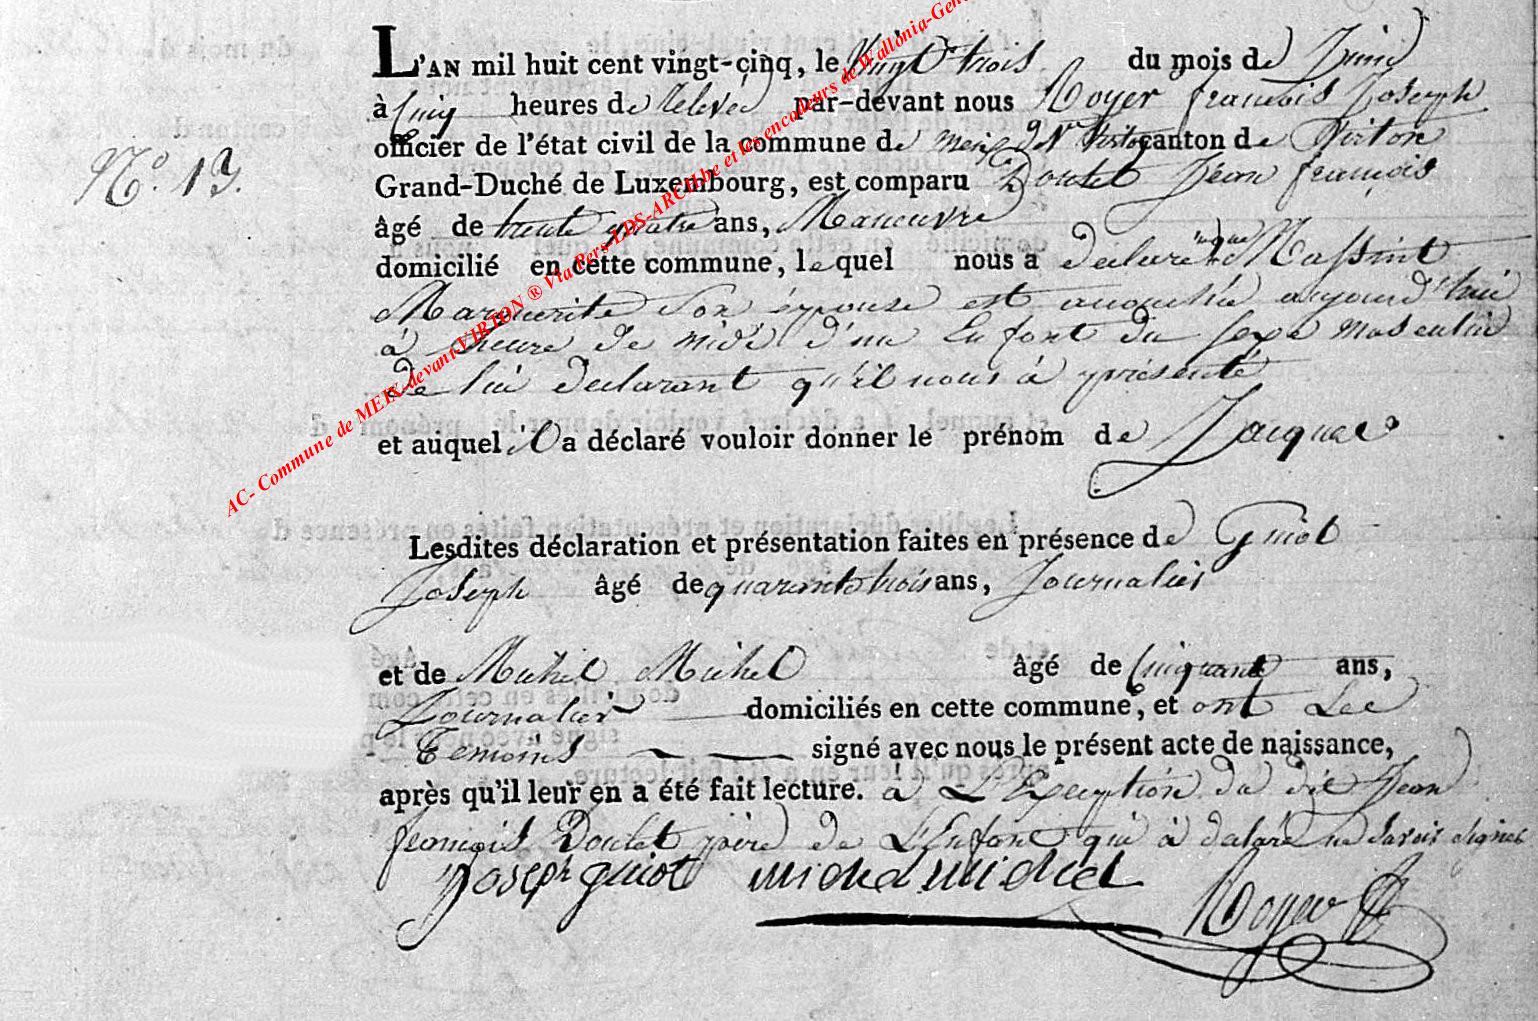 L'AN mil huit cent vingt-cinq, le Vingt trois du mois de Juin
à Cinq heures de Relevée par-devant nous Royer francois Joseph
officier de l'état civil de la commune de meix dt Virton canton de Virton
Grand-Duché de Luxembourg, est comparu Doulet Jean francois
N°. 13.
âgé de trente quatre ans, Maneuvre
domicilié en cette commune, lequel nous a declaré que Massint
Marguerite Son épouse est aucouchée aujourd'hui
à heure de midi d'un Enfant du sexe masculin
de lui declarant qu'il nous à présenté
et auquel il a déclaré vouloir donner le prénom de Jacques
Lesdites déclaration et présentation faites en présence de Guiot
Joseph âgé de quarente trois ans, Journalier
et de Michel Michel âgé de Cinquante ans,
Journalier domiciliés en cette commune, et ont Les
Temoins signé avec nous le présent acte de naissance,
après qu'il leur en a été fait lecture. à L'Exception du dit Jean
francois Doulet père de L'Enfant qui à declaré ne Savoir signer
Joseph guiot michel michel Royer
AC- Commune de MEIX-devant-VIRTON ® Via Pers-LDS-ARCH.be et les encodeurs de Wallonia-Gen